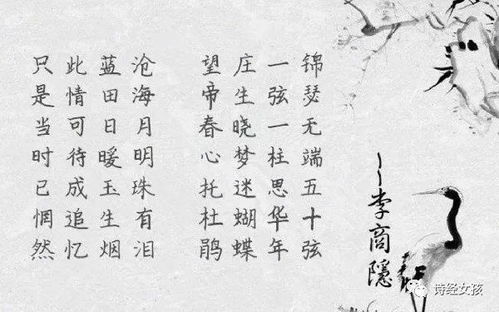 锦瑟无端五十弦
一弦一柱思华年
庄生晓梦迷蝴蝶
望帝春心托杜鹃
沧海月明珠有泪
蓝田日暖玉生烟
此情可待成追忆
只是当时已惘然
~李商隐
诗经女孩